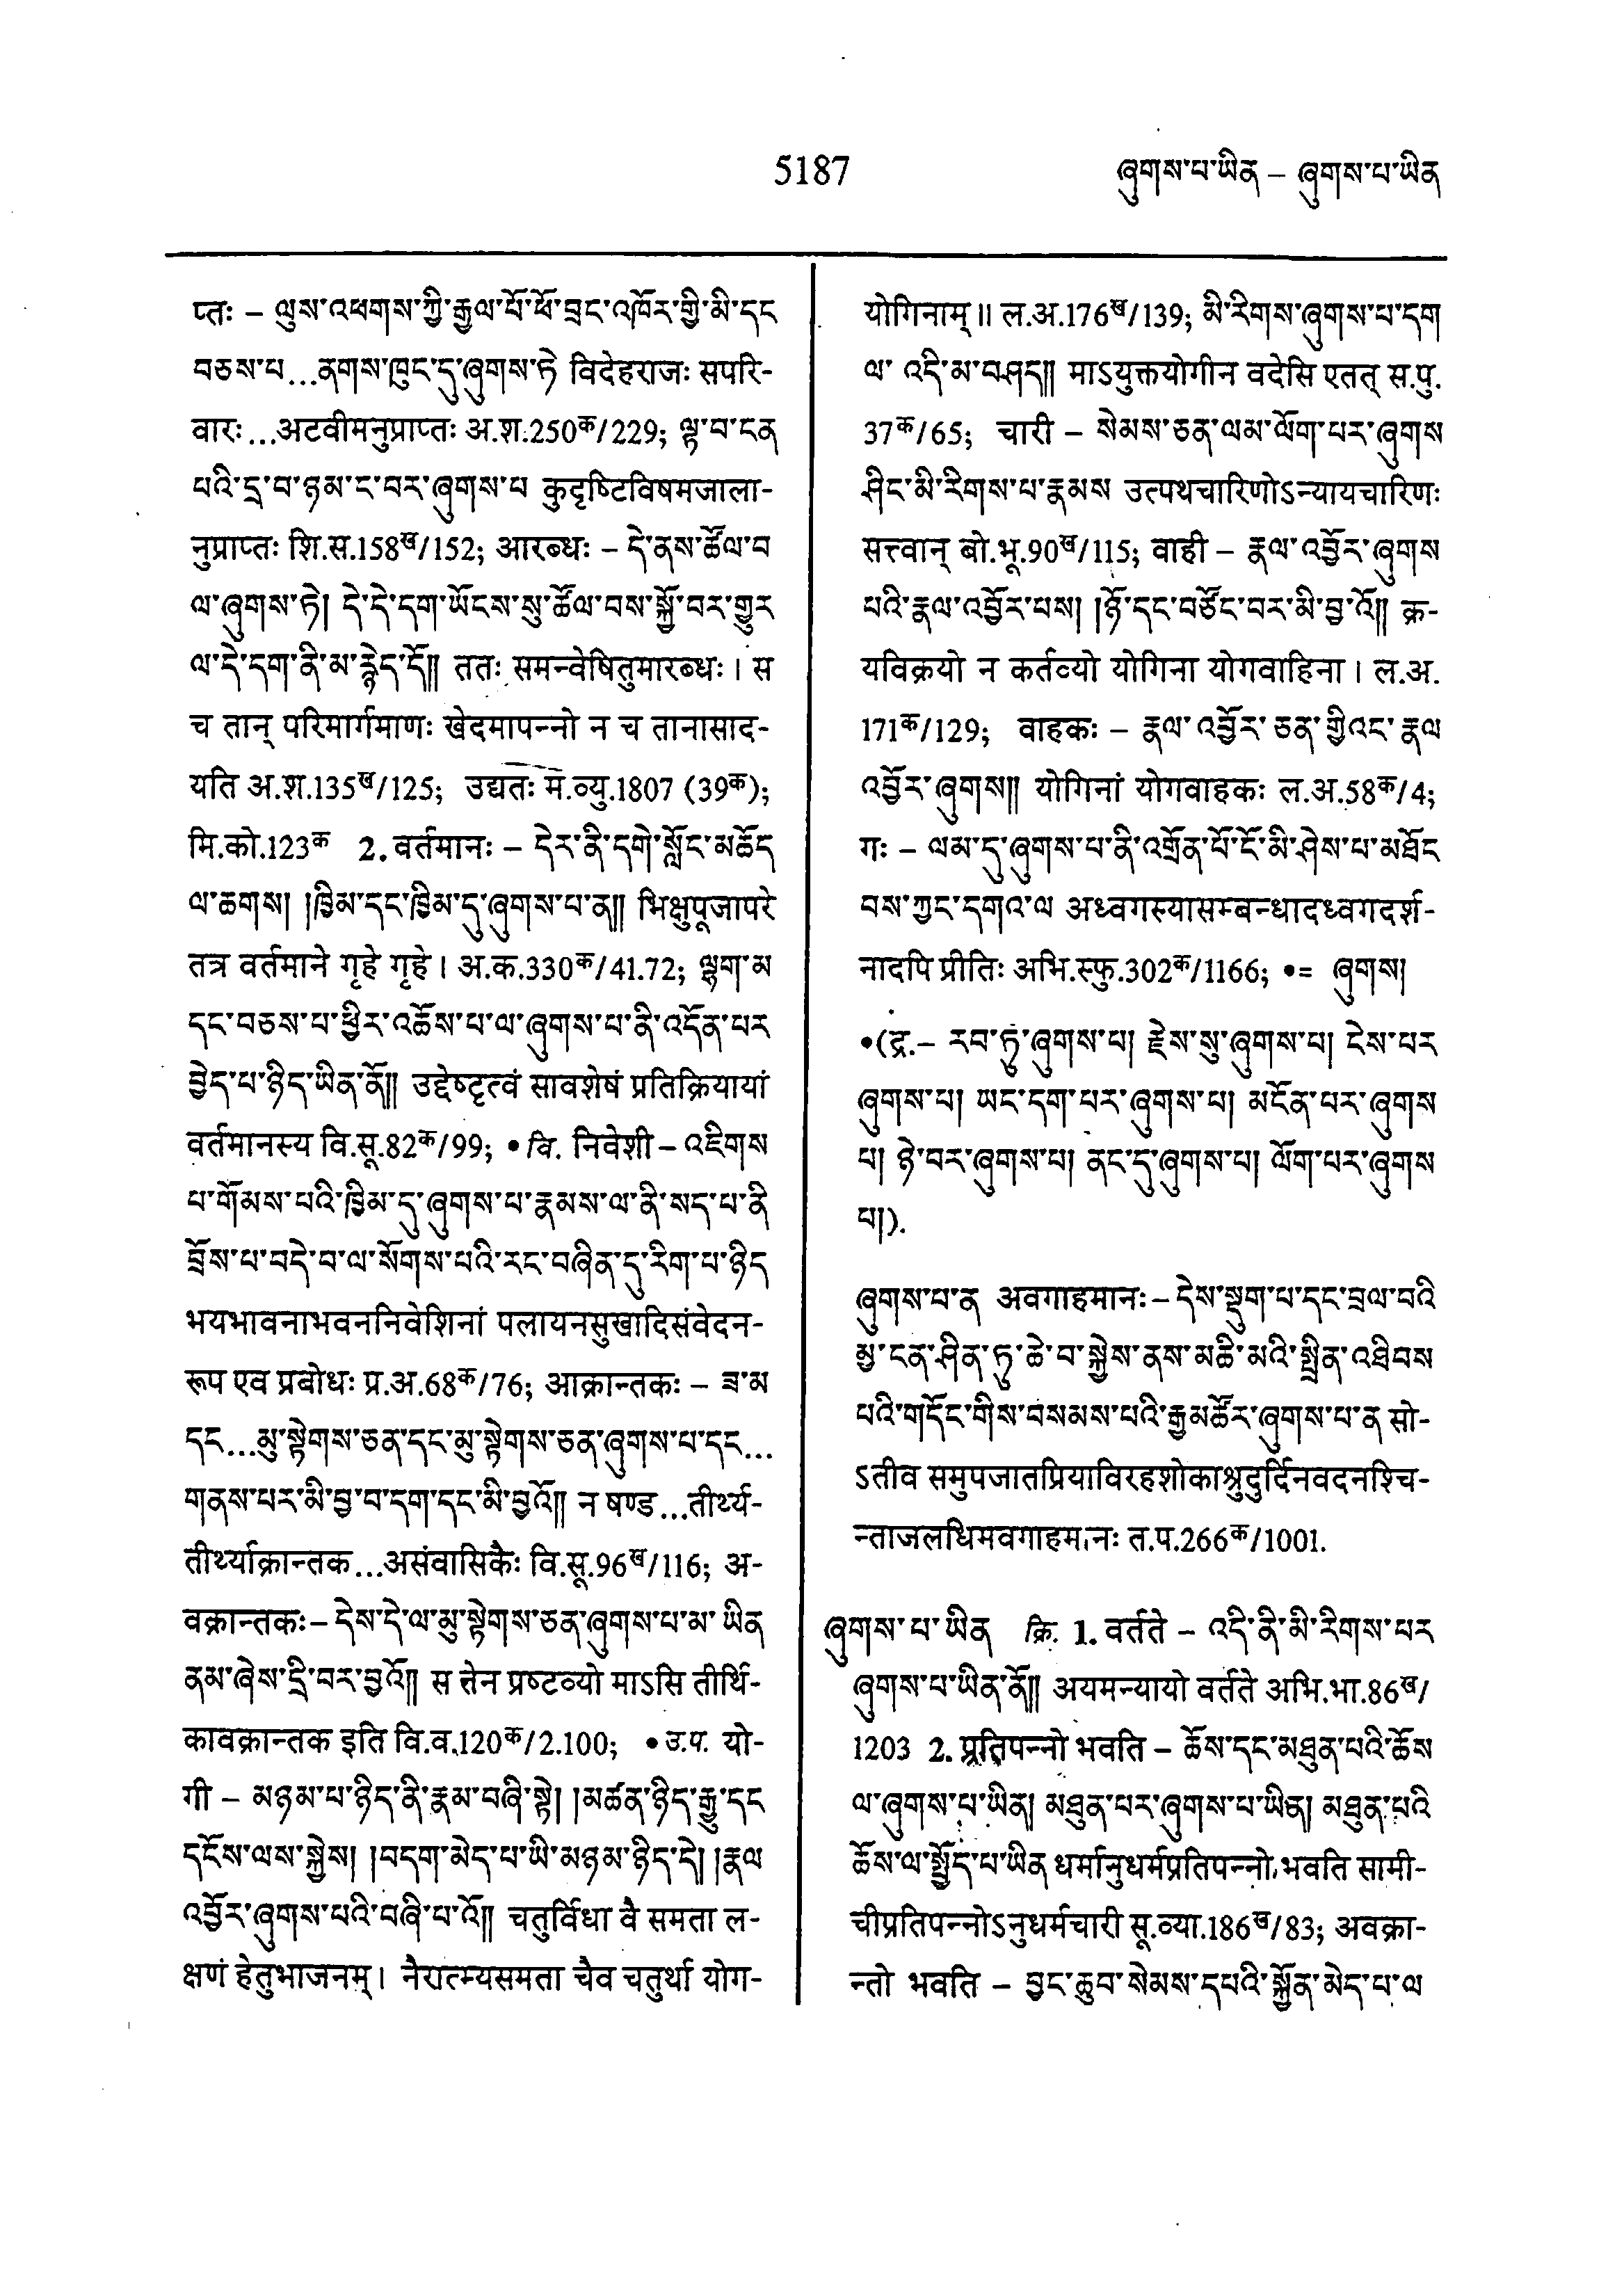 5187
ཞུགས་པ་ཡིན – ཞུགས་པ་ཡིན
प्तः – ལུས་འཕགས་ཀྱི་རྒྱལ་པོ་ཕོ་བྲང་འཁོར་གྱི་མི་དང
བཅས་པ...ནགས་ཁུང་དུ་ཞུགས་ཏེ विदेहराजः सपरि-
वारः...अटवीमनुप्राप्तः अ.श.250क/229; ལྟ་བ་ངན
པའི་དྲ་བ་ཉམ་ང་བར་ཞུགས་པ कुदृष्टिविषमजाला-
नुप्राप्तः शि.स.158ख/152; आरब्धः – དེ་ནས་ཚོལ་བ
ལ་ཞུགས་ཏེ། དེ་དེ་དག་ཡོངས་སུ་ཚོལ་བས་སྐྱོ་བར་གྱུར
ལ་དེ་དག་ནི་མ་རྙེད་དོ༎ ततः समन्वेषितुमारब्धः । स
च तान् परिमार्गमाणः खेदमापन्नो न च तानासाद-
यति अ.श.135ख/125; उद्यतः म.व्यु.1807 (39क);
मि.को.123क 2. वर्तमानः – དེར་ནི་དགེ་སློང་མཆོད
ལ་ཆགས། །ཁྱིམ་དང་ཁྱིམ་དུ་ཞུགས་པ་ན༎ भिक्षुपूजापरे
तत्र वर्तमाने गृहे गृहे । अ.क.330क/41.72; ལྷག་མ
དང་བཅས་པ་ཕྱིར་འཆོས་པ་ལ་ཞུགས་པ་ནི་འདོན་པར
བྱེད་པ་ཉིད་ཡིན་ནོ༎ उद्देष्टृत्वं सावशेषं प्रतिक्रियायां
वर्तमानस्य वि.सू.82क/99; • वि. निवेशी – འཇིགས
པ་གོམས་པའི་ཁྱིམ་དུ་ཞུགས་པ་རྣམས་ལ་ནི་སད་པ་ནི
བྲོས་པ་བདེ་བ་ལ་སོགས་པའི་རང་བཞིན་དུ་རིག་པ་ཉིད
भयभावनाभवननिवेशिनां पलायनसुखादिसंवेदन-
रूप एव प्रबोधः प्र.अ.68क/76; आक्रान्तकः – ཟ་མ
དང...མུ་སྟེགས་ཅན་དང་མུ་སྟེགས་ཅན་ཞུགས་པ་དང...
གནས་པར་མི་བྱ་བ་དག་དང་མི་བྱའོ༎ न षण्ड...तीर्थ्य-
तीर्थ्याक्रान्तक...असंवासिकैः वि.सू.96ख/116; अ-
वक्रान्तकः – དེས་དེ་ལ་མུ་སྟེགས་ཅན་ཞུགས་པ་མ་ ཡིན
ནམ་ཞེས་དྲི་བར་བྱའོ༎ स तेन प्रष्टव्यो माऽसि तीर्थि-
कावक्रान्तक इति वि.व.120क/2.100; • उ.प. यो-
गी – མཉམ་པ་ཉིད་ནི་རྣམ་བཞི་སྟེ། །མཚན་ཉིད་རྒྱུ་དང
དངོས་ལས་སྐྱེས། །བདག་མེད་པ་ཡི་མཉམ་ཉིད་དེ། །རྣལ
འབྱོར་ཞུགས་པའི་བཞི་པ་འོ༎ चतुर्विधा वै समता ल-
क्षणं हेतुभाजनम् । नैरात्म्यसमता चैव चतुर्था योग-
योगिनाम् ॥ ल.अ.176ख/139; མི་རིགས་ཞུགས་པ་དག
ལ་ འདི་མ་བཤད༎ माऽयुक्तयोगीन वदेसि एतत् स.पु.
37क/65; चारी – སེམས་ཅན་ལམ་ལོག་པར་ཞུགས
ཤིང་མི་རིགས་པ་རྣམས उत्पथचारिणोऽन्यायचारिणः
सत्त्वान् बो.भू.90ख/115; वाही – རྣལ་འབྱོར་ཞུགས
པའི་རྣལ་འབྱོར་པས། །ཉོ་དང་བཙོང་བར་མི་བྱ་འོ༎ क्र-
यविक्रयो न कर्तव्यो योगिना योगवाहिना । ल.अ.
171क/129; वाहकः – རྣལ་འབྱོར་ ཅན་གྱིའང་རྣལ
འབྱོར་ཞུགས༎ योगिनां योगवाहकः ल.अ.58क/4;
गः – ལམ་དུ་ཞུགས་པ་ནི་འགྲོན་པོ་ངོ་མི་ཤེས་པ་མཐོང
བས་ཀྱང་དགའ་ལ अध्वगस्यासम्बन्धादध्वगदर्श-
नादपि प्रीतिः अभि.स्फु.302क/1166; •= ཞུགས།
•(द्र.– རབ་ཏུ་ཞུགས་པ། རྗེས་སུ་ཞུགས་པ། ངེས་པར
ཞུགས་པ། ཡང་དག་པར་ཞུགས་པ། མངོན་པར་ཞུགས
པ། ཉེ་བར་ཞུགས་པ། ནང་དུ་ཞུགས་པ། ལོག་པར་ཞུགས
པ།).
ཞུགས་པ་ན अवगाहमानः – དེས་སྡུག་པ་དང་བྲལ་བའི
མྱ་ངན་ཤིན་ཏུ་ཆེ་བ་སྐྱེས་ནས་མཆི་མའི་སྤྲིན་འཐིབས
པའི་གདོང་གིས་བསམས་པའི་རྒྱ་མཚོར་ཞུགས་པ་ན सो-
ऽतीव समुपजातप्रियाविरहशोकाश्रुदुर्दिनवदनश्चि-
न्ताजलधिमवगाहमानः त.प.266क/1001.
ཞུགས་པ་ཡིན क्रि. 1. वर्तते – འདི་ནི་མི་རིགས་པར
ཞུགས་པ་ཡིན་ནོ༎ अयमन्यायो वर्तते अभि.भा.86ख/
1203 2. प्रतिपन्नो भवति – ཆོས་དང་མཐུན་པའི་ཆོས
ལ་ཞུགས་པ་ཡིན། མཐུན་པར་ཞུགས་པ་ཡིན། མཐུན་པའི
ཆོས་ལ་སྤྱོད་པ་ཡིན धर्मानुधर्मप्रतिपन्नो भवति सामी-
चीप्रतिपन्नोऽनुधर्मचारी सू.व्या.186ख/83; अवक्रा-
न्तो भवति – བྱང་ཆུབ་སེམས་དཔའི་སྐྱོན་མེད་པ་ལ